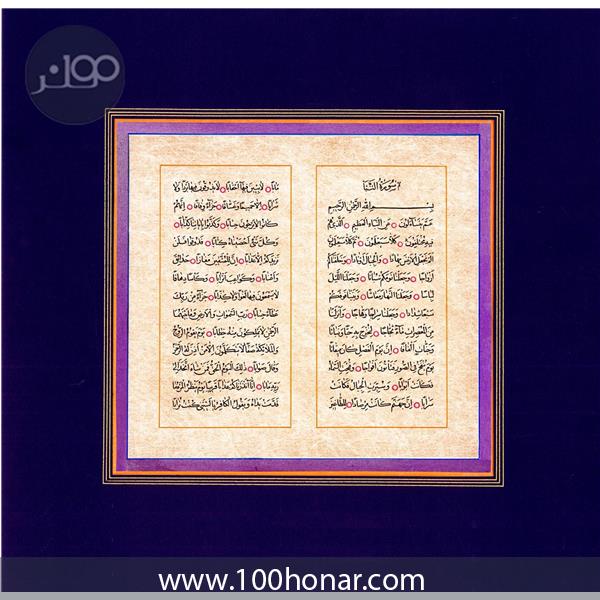 صدهنر
سورة النبأ
بسم الله الرحمن الرحيم
عم يتساءلون عن النبإ العظيم الذي هم
فيه مختلفون كلا سيعلمون ثم كلا سيعلمون ألم
نجعل الأرض مهادا والجبال أوتادا وخلقناكم
أزواجا وجعلنا نومكم سباتا وجعلنا الليل
لباسا وجعلنا النهار معاشا وبنينا فوقكم
سبعا شدادا وجعلنا سراجا وهاجا وأنزلنا
من المعصرات ماء ثجاجا لنخرج به حبا ونباتا
وجنات ألفافا إن يوم الفصل كان ميقاتا
يوم ينفخ في الصور فتأتون أفواجا وفتحت السماء
فكانت أبوابا وسيرت الجبال فكانت
سرابا إن جهنم كانت مرصادا للطاغين
مآبا لابثين فيها أحقابا لا يذوقون فيها بردا ولا
شرابا إلا حميما وغساقا جزاء وفاقا إنهم
كانوا لا يرجون حسابا وكذبوا بآياتنا كذابا
وكل شيء أحصيناه كتابا فذوقوا فلن
نزيدكم إلا عذابا إن للمتقين مفازا حدائق
وأعنابا وكواعب أترابا وكأسا دهاقا
لا يسمعون فيها لغوا ولا كذابا جزاء من ربك
عطاء حسابا رب السموات والأرض وما بينهما
الرحمن لا يملكون منه خطابا يوم يقوم الروح
والملائكة صفا لا يتكلمون إلا من أذن له الرحمن
وقال صوابا ذلك اليوم الحق فمن شاء اتخذ إلى
ربه مآبا إنا أنذرناكم عذابا قريبا يوم ينظر المرء ما
قدمت يداه ويقول الكافر يا ليتني كنت ترابا
www.100honar.com